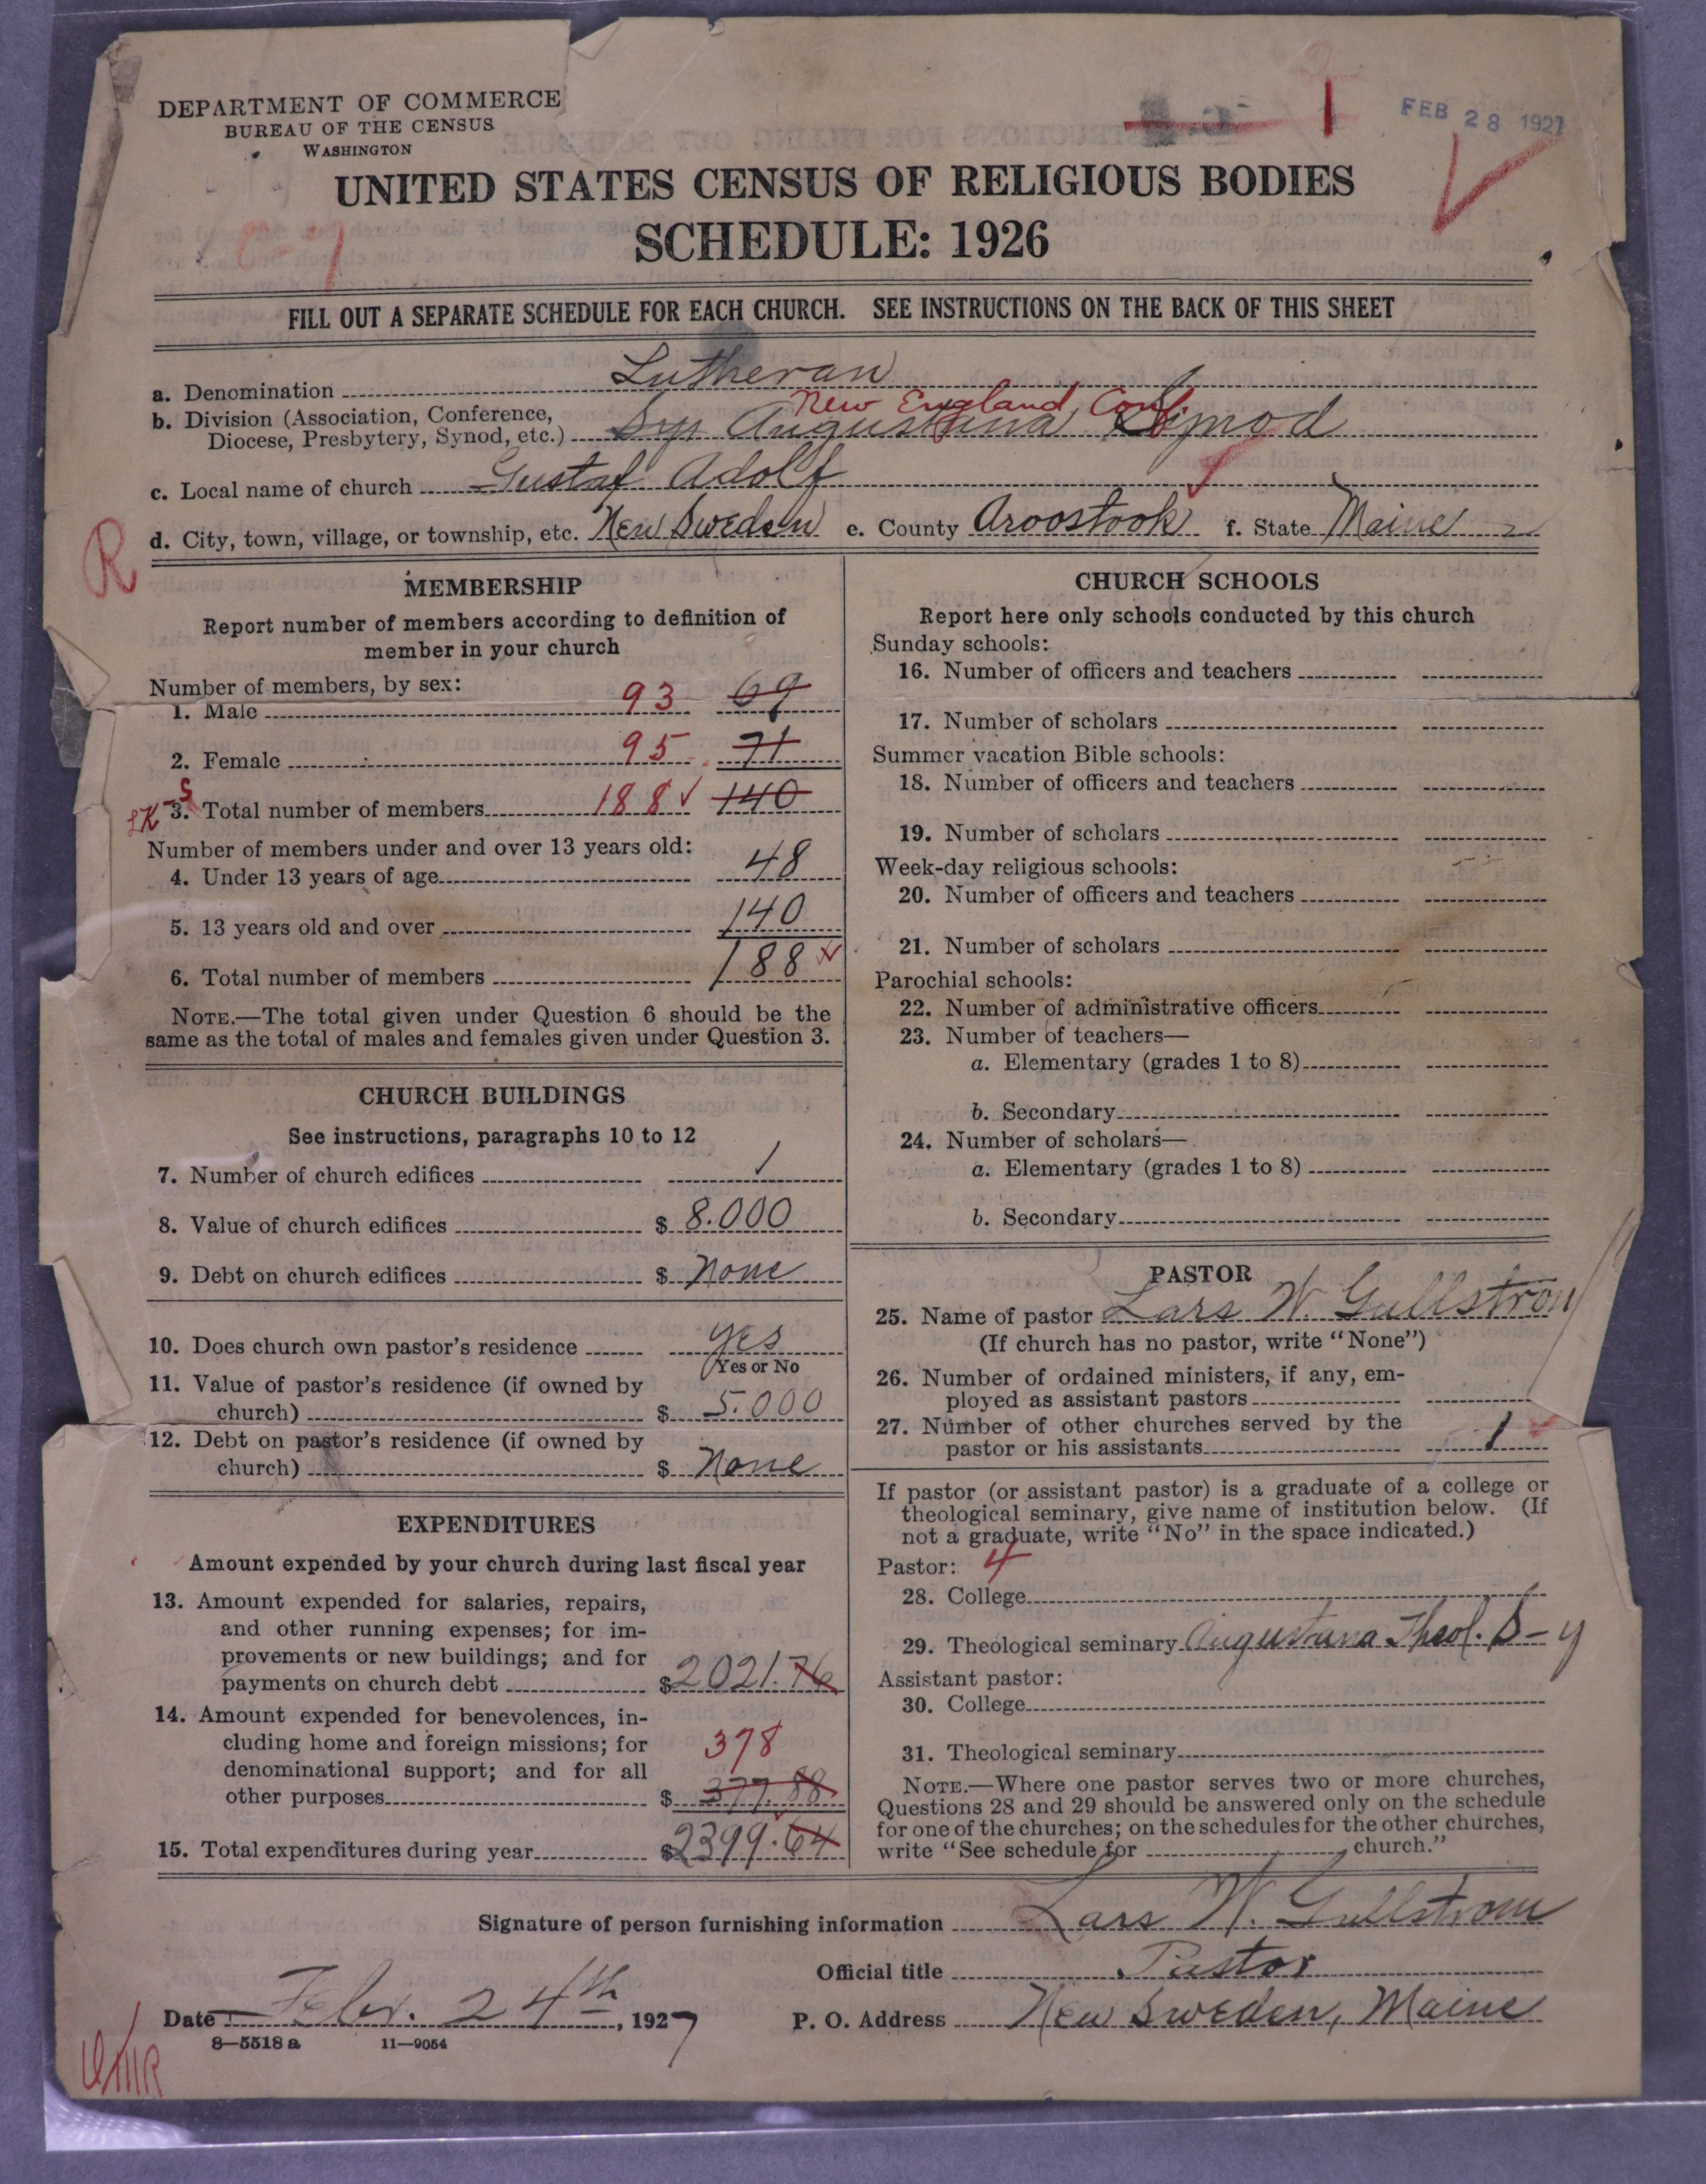 DEPARTMENT OF COMMERCE
BUREAU OF THE CENSUS
WASHINGTON
1
FEB 28 1927
UNITED STATES CENSUS OF RELIGIOUS BODIES
SCHEDULE: 1926
FILL OUT A SEPARATE SCHEDULE FOR EACH CHURCH. SEE INSTRUCTIONS ON THE BACK OF THIS SHEET
a. Denomination Lutheran
New England Conf.
b. Division (Association, Conference,
Diocese, Presbytery, Synod, etc.) Augustana Synod
c. Local name of church Gustaf Adolf
d. City, town, village, or township, etc. New Sweden e. County Aroostook f. State Maine
R
MEMBERSHIP
Report number of members according to definition of
member in your church
Number of members, by sex:
1. Male 93 69
2. Female 95 71
3. Total number of members 188 140
Number of members under and over 13 years old:
4. Under 13 years of age 48
5. 13 years old and over 140
6. Total number of members 188
NOTE.—The total given under Question 6 should be the
same as the total of males and females given under Question 3.
CHURCH BUILDINGS
See instructions, paragraphs 10 to 12
7. Number of church edifices 1
8. Value of church edifices $ 8.000
9. Debt on church edifices $ None
10. Does church own pastor's residence yes
Yes or No
11. Value of pastor's residence (if owned by
church) $ 5.000
12. Debt on pastor's residence (if owned by
church) $ None
EXPENDITURES
Amount expended by your church during last fiscal year
13. Amount expended for salaries, repairs,
and other running expenses; for im-
provements or new buildings; and for
payments on church debt $ 2021.76
14. Amount expended for benevolences, in-
cluding home and foreign missions; for 378
denominational support; and for all
other purposes $ 377.88
15. Total expenditures during year $ 2399.64
CHURCH SCHOOLS
Report here only schools conducted by this church
Sunday schools:
16. Number of officers and teachers
17. Number of scholars
Summer vacation Bible schools:
18. Number of officers and teachers
19. Number of scholars
Week-day religious schools:
20. Number of officers and teachers
21. Number of scholars
Parochial schools:
22. Number of administrative officers
23. Number of teachers—
a. Elementary (grades 1 to 8)
b. Secondary
24. Number of scholars—
a. Elementary (grades 1 to 8)
b. Secondary
PASTOR
25. Name of pastor Lars W. Gullstrom
(If church has no pastor, write "None")
26. Number of ordained ministers, if any, em-
ployed as assistant pastors
27. Number of other churches served by the
pastor or his assistants 1
If pastor (or assistant pastor) is a graduate of a college or
theological seminary, give name of institution below. (If
not a graduate, write "No" in the space indicated.)
Pastor: 4
28. College
29. Theological seminary Augustana Theol. S-y
Assistant pastor:
30. College
31. Theological seminary
NOTE.—Where one pastor serves two or more churches,
Questions 28 and 29 should be answered only on the schedule
for one of the churches; on the schedules for the other churches,
write "See schedule for church."
Signature of person furnishing information Lars W. Gullstrom
Official title Pastor
Date Febr. 24th, 1927 P. O. Address New Sweden, Maine
8—5518 a 11—9054